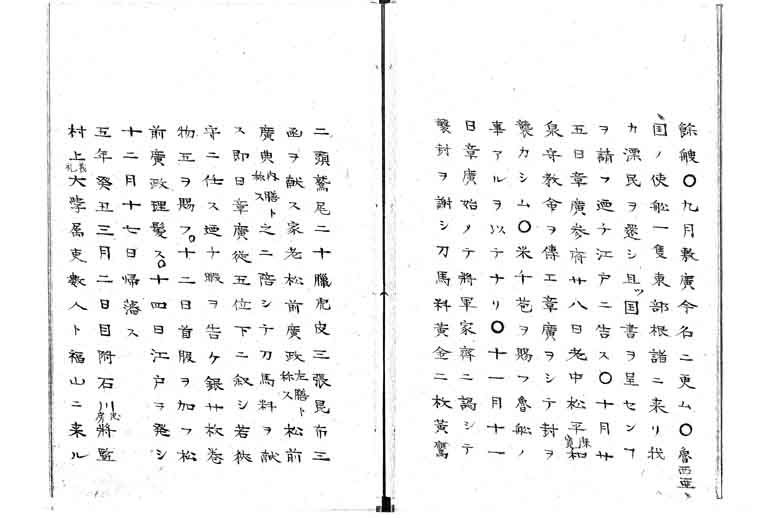 餘艘〇九月敷廣今名ニ更ム〇魯西亜
国ノ使船一隻東部根諸ニ来リ我
カ漂民ヲ還シ且ツ国書ヲ呈センフ
ヲ請フ廼チ江戸ニ告ス〇十月廿
五日章廣参府廿八日老中松平和
泉守教命ヲ傳エ章廣ヲシテ封ヲ
襲カシム〇米千苞ヲ賜フ魯船ノ
事アルヲ以テナリ〇十一月十一
日章廣始メテ将軍家齊ニ謁シテ
襲封ヲ謝シ刀馬料黄金二枚黄鷹
二頭鷲尾二十臘虎皮三張昆布三
函ヲ献ス家老松前廣政左膳ト称ス松前
廣典内膳ト称ス之ニ陪シテ刀馬料ヲ献
ス即日章廣従五位下ニ叙シ若狭
守ニ任ス廼チ暇ヲ告ケ銀廿枚巻
物五ヲ賜フ〇十二日首服ヲ加フ松
前廣政理髪ス〇十四日江戸ヲ発シ
十二月十七日帰藩ス
五年癸丑三月二日目附石川忠房将監
村上義礼大學属吏数人ト福山ニ来ル